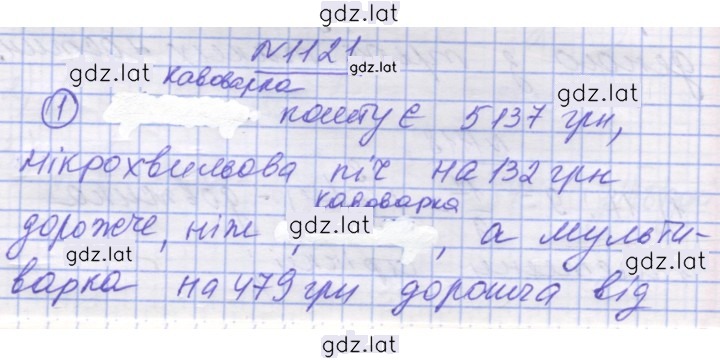 gdz.lat
№1121
gdz.lat
gdz.lat
кавоварка
gdz.lat
① коштує 5137 грн,
мікрохвильова піч на 132 грн
кавоварка
дорожче, ніж , gdz.lat , а мульти-
gdz.lat
gdz.lat
варка на 479 грн дорожча від
gdz.lat